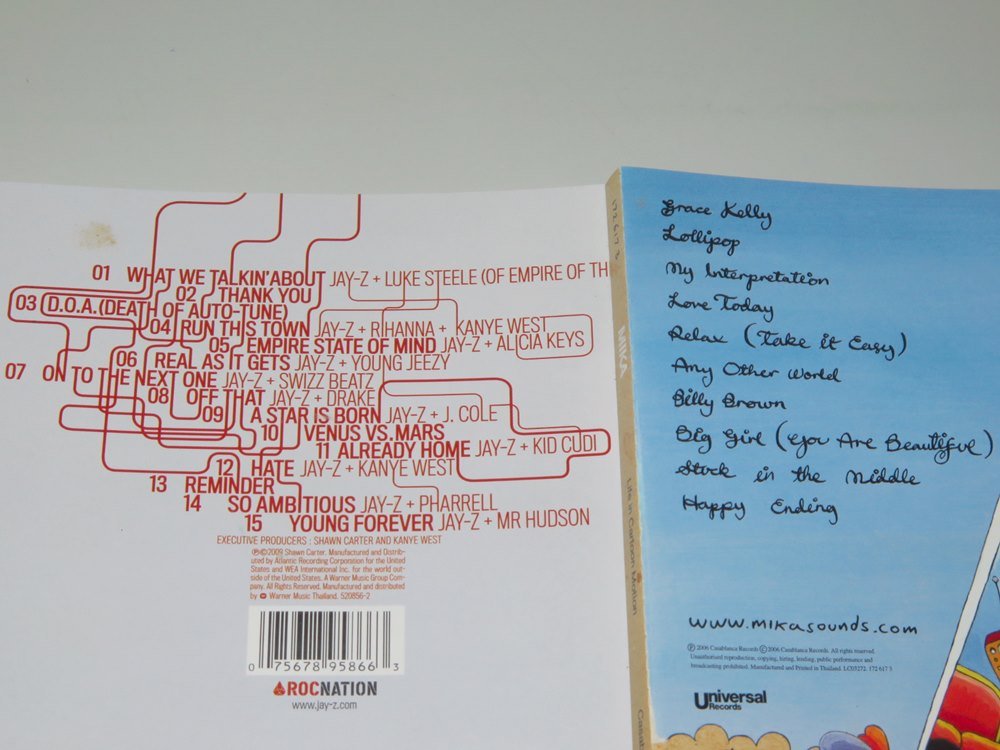 01 WHAT WE TALKIN'ABOUT JAY-Z + LUKE STEELE (OF EMPIRE OF TH
02 THANK YOU
03 D.O.A.(DEATH OF AUTO-TUNE)
04 RUN THIS TOWN JAY-Z + RIHANNA + KANYE WEST
05 EMPIRE STATE OF MIND JAY-Z + ALICIA KEYS
06 REAL AS IT GETS JAY-Z + YOUNG JEEZY
07 ON TO THE NEXT ONE JAY-Z + SWIZZ BEATZ
08 OFF THAT JAY-Z + DRAKE
09 A STAR IS BORN JAY-Z + J. COLE
10 VENUS VS. MARS
11 ALREADY HOME JAY-Z + KID CUDI
12 HATE JAY-Z + KANYE WEST
13 REMINDER
14 SO AMBITIOUS JAY-Z + PHARRELL
15 YOUNG FOREVER JAY-Z + MR HUDSON
EXECUTIVE PRODUCERS : SHAWN CARTER AND KANYE WEST
℗©2009 Shawn Carter. Manufactured and Distrib-
uted by Atlantic Recording Corporation for the United
States and WEA International Inc. for the world out-
side of the United States. A Warner Music Group Com-
pany. All Rights Reserved. Manufactured and distributed
by Warner Music Thailand. 520856-2
0 75678 95866 3
ROCNATION
www.jay-z.com
172 617 3
MIKA
Life in Cartoon Motion
Grace Kelly
Lollipop
My Interpretation
Love Today
Relax (Take it Easy)
Any Other World
Billy Brown
Big Girl (you Are Beautiful)
Stuck in the Middle
Happy Ending
www.mikasounds.com
℗ 2006 Casablanca Records ©2006 Casablanca Records. All rights reserved.
Unauthorised reproduction, copying, hiring, lending, public performance and
broadcasting prohibited. Manufactured and Printed in Thailand. LC03272. 172 617 3
Universal
Records